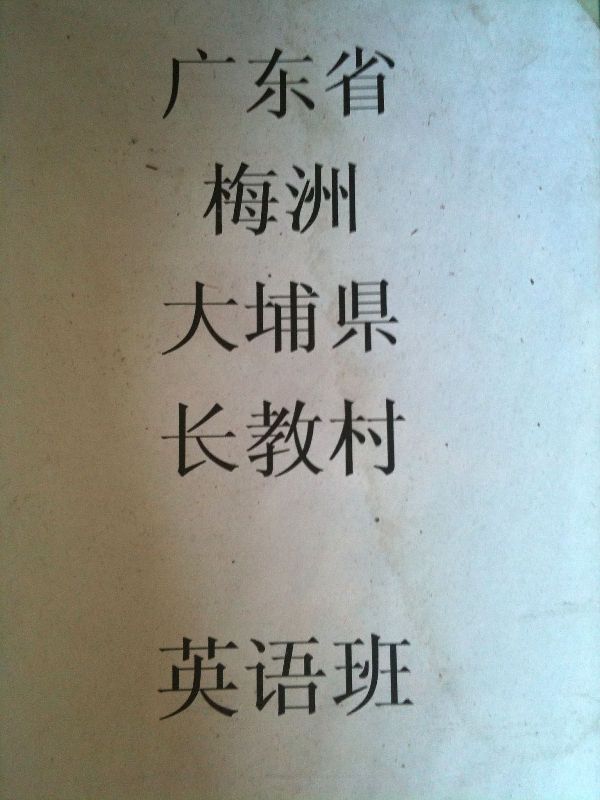 广东省
梅洲
大埔県
长教村
英语班